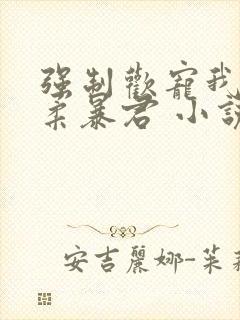 强制歡寵我
柔暴君 小說
安吉麗娜-茱莉